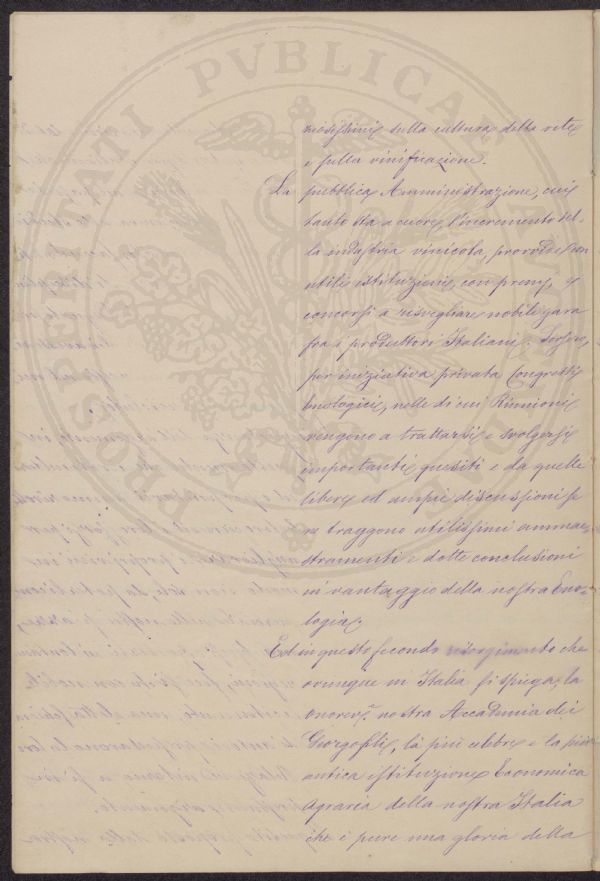 PROSPERITATI PVBLICAE AVGENDAE
sulla cultura della vite
e sulla vinificazione.
La pubblica Amministrazione, cui
tanto sta a cuore l'incremento del-
la industria vinicola, provvide con
utili istituzioni, con premj, e
concorsi a risvegliare nobile gara
fra i produttori Italiani. Sorsero,
per iniziativa privata Congressi
Enologici, nelle di cui Riunioni
vengono a trattarsi e svolgersi
importanti quesiti e da quelle
libere ed ampie discussioni se
ne traggono utilissimi ammae-
stramenti e dotte conclusioni
in vantaggio della nostra Eno-
logia.
Ed in questo fecondo risorgimento che
ovunque in Italia si spiega, la
onorev.e nostra Accademia dei
Georgofili, la più celebre e la più
antica istituzione Economica
Agraria della nostra Italia
che è pure una gloria della